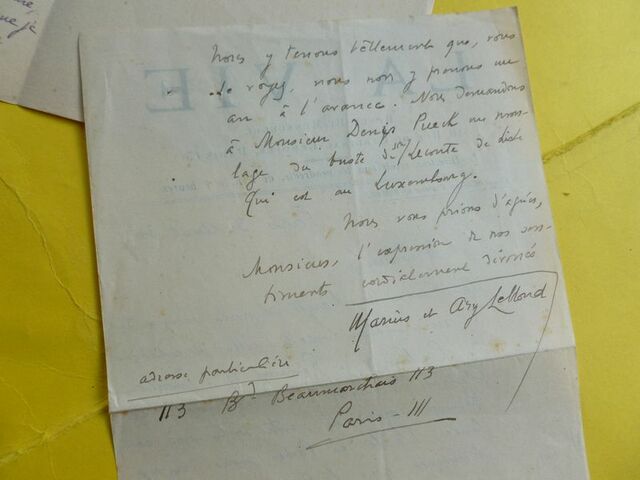 Nous y tenons tellement que, vous
le voyez, nous nous y prenons un
an à l'avance. Nous demandons
à Monsieur Denys Puech un mou-
lage du buste de Leconte de Lisle
qui est au Luxembourg.
Nous vous prions d'agréer,
Monsieur, l'expression de nos sen-
timents cordialement dévoués
Marius et Ary Leblond
adresse particulière
113 Bd Beaumarchais 113
Paris - III
LA VIE